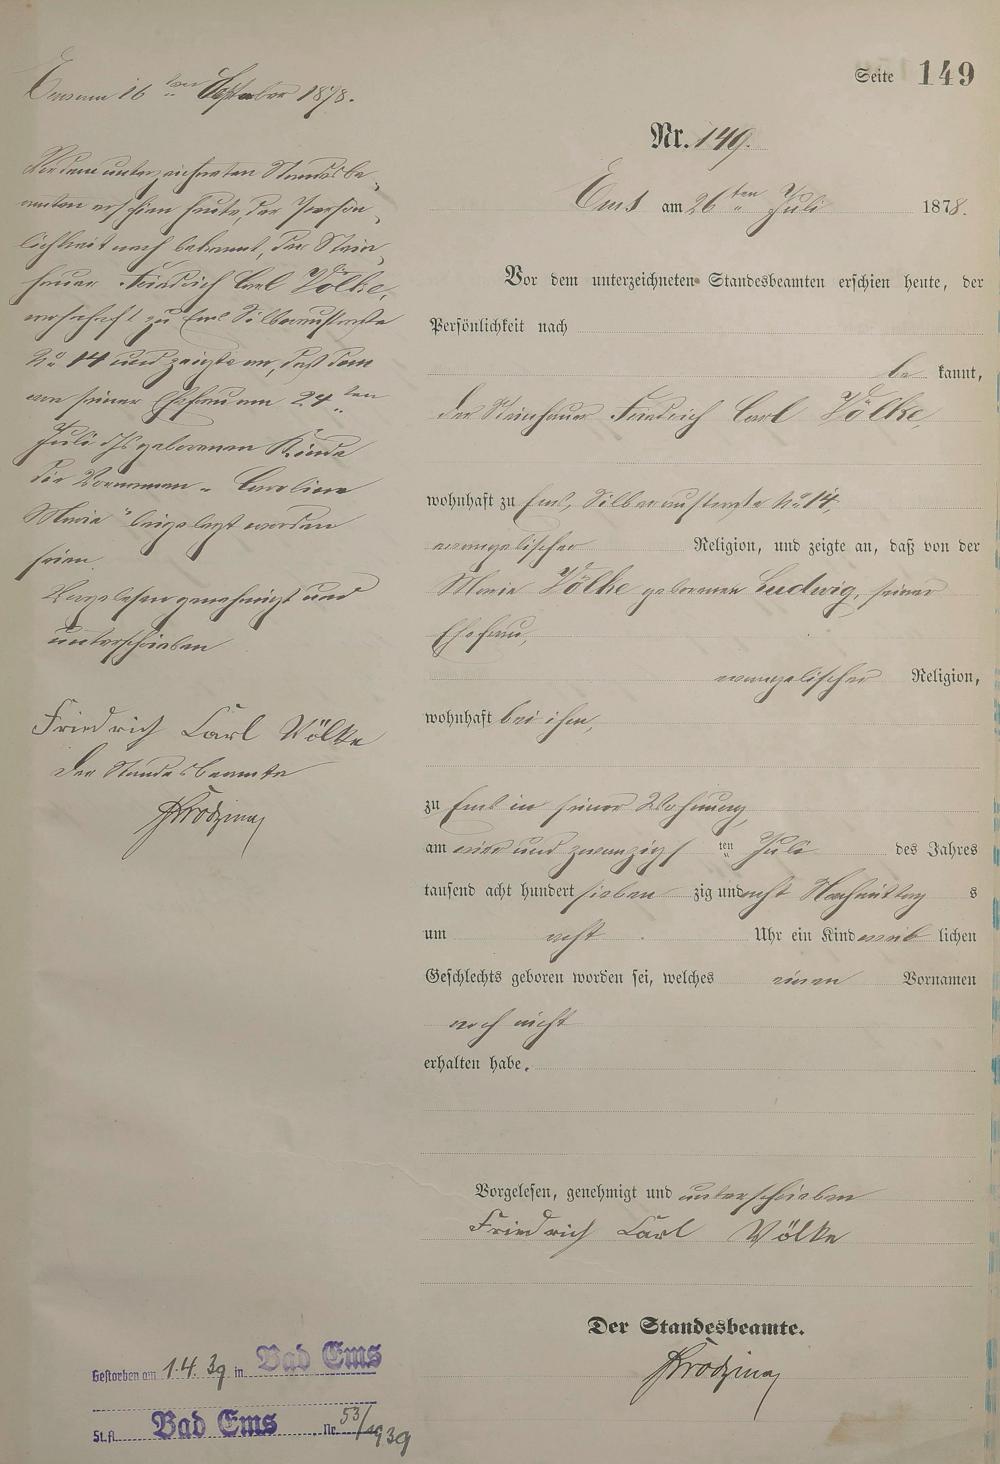 Ems am 16ten September 1878.
Vor dem unterzeichneten Standesbe-
amten erschien heute, der Persön-
lichkeit nach bekannt, der Stein-
hauer Friedrich Carl Völke,
wohnhaft zu Ems Silberaustraße
No 14 und zeigte an, daß dem
von seiner Ehefrau am 24ten
Juli d Js geborenen Kinde
die Vornamen „Caroline
Maria" beigelegt worden
seien.
Vorgelesen genehmigt und
unterschrieben
Friedrich Carl Völke
Der Standesbeamte
Seite 149
Nr. 149.
Ems am 26ten Juli 1878.
Vor dem unterzeichneten Standesbeamten erschien heute, der
Persönlichkeit nach
be kannt,
der Steinhauer Friedrich Carl Völke,
wohnhaft zu Ems, Silberaustraße No 14,
evangelischer Religion, und zeigte an, daß von der
Maria Völke geborenen Ludwig, seiner
Ehefrau,
evangelischer Religion,
wohnhaft bei ihm,
zu Ems in seiner Wohnung,
am vier und zwanzigsten Juli des Jahres
tausend acht hundert sieben zig und acht Nachmittag s
um acht Uhr ein Kind weib lichen
Geschlechts geboren worden sei, welches einen Vornamen
noch nicht
erhalten habe.
Vorgelesen, genehmigt und unterschrieben
Friedrich Carl Völke
Der Standesbeamte.
Gestorben am 1.4.39 in Bad Ems
St.A. Bad Ems Nr. 53/1939